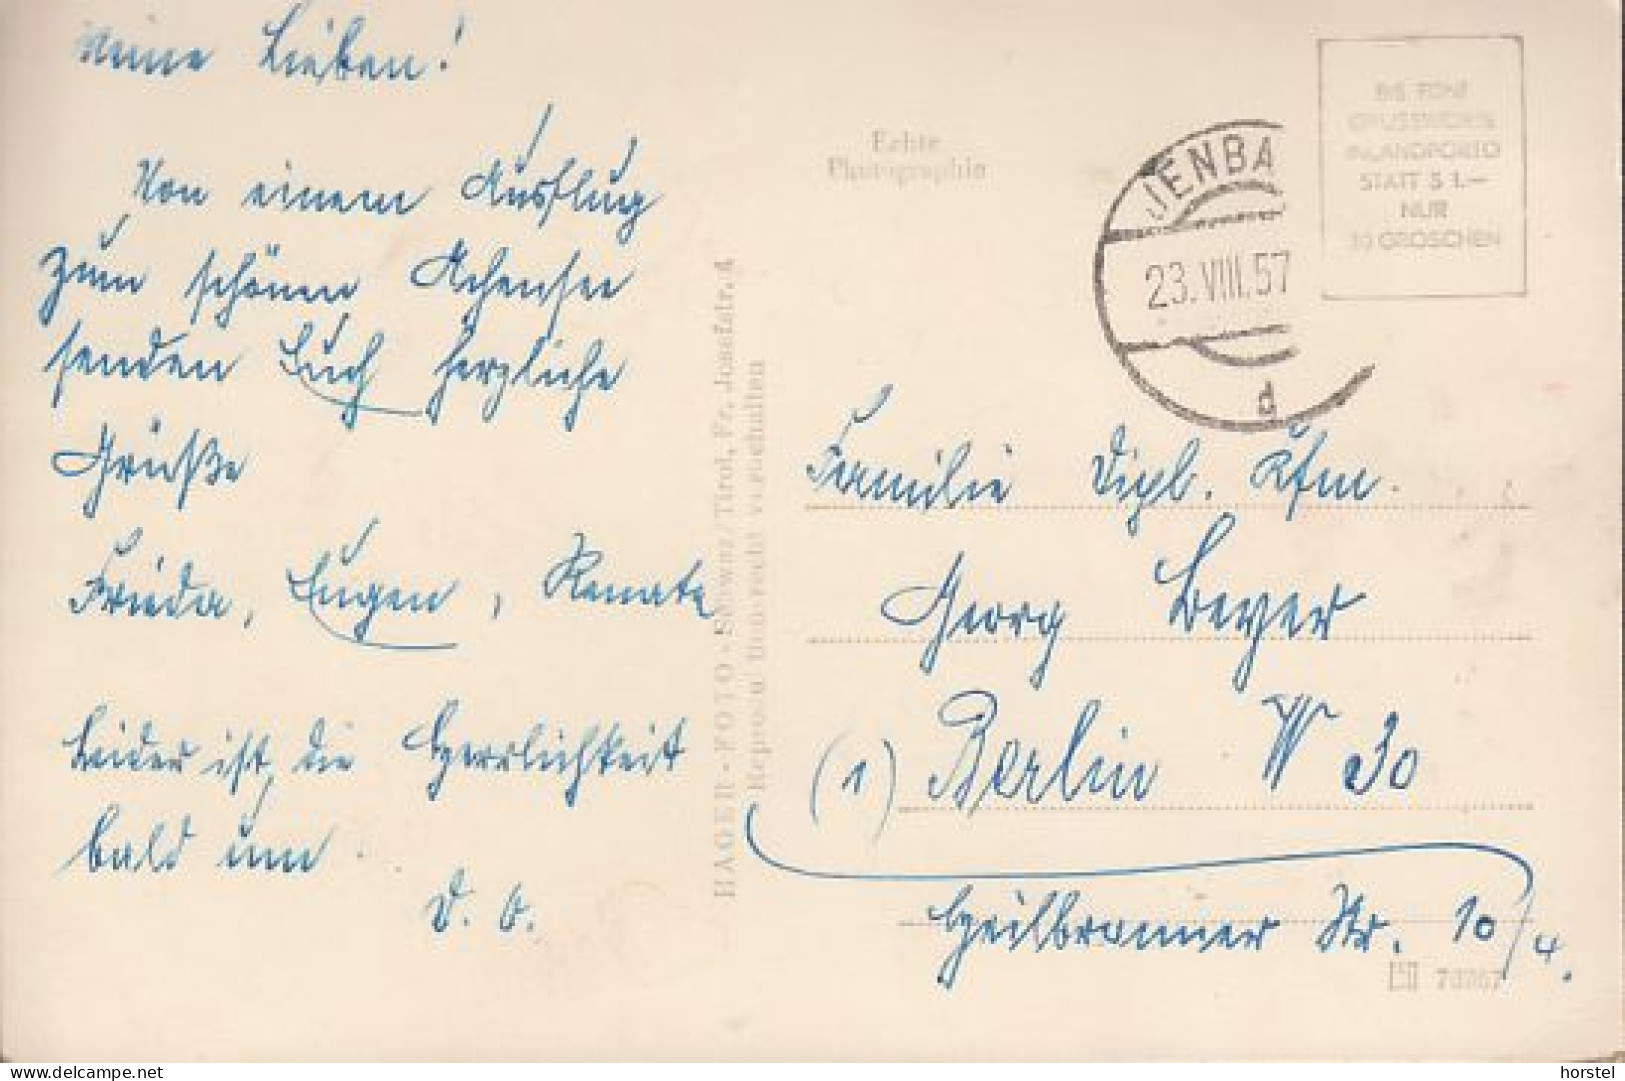 Meine Lieben!
Von einem Ausflug
zum schönen Achensee
senden Euch herzliche
Grüße
Frieda, Eugen, Renate
Leider ist die Herrlichkeit
bald um.
D. O.
HAGER-FOTO - Schwaz/Tirol, Fr. Josefstr. 4
Reproduktionsrecht vorbehalten
Echte
Photographie
JENBA
23.VIII.57
d
BIS FÜNF
GRUSSWORTE
INLANDPORTO
STATT S 1.—
NUR
30 GROSCHEN
Familie Dipl. Kfm.
Georg Beyer
(1) Berlin W 30
Heilbronner Str. 10/4.
horstel
www.delcampe.net